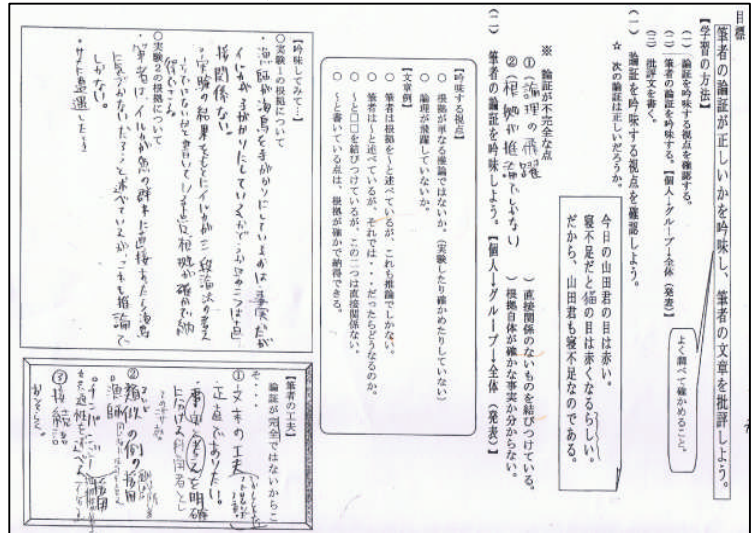 目標
筆者の論証が正しいかを吟味し、筆者の文章を批評しよう。
【学習の方法】
(一) 論証を吟味する視点を確認する。
(二) 筆者の論証を吟味する。【個人→グループ→全体(発表)】
(三) 批評文を書く。
よく調べて確かめること。
(一) 論証を吟味する視点を確認しよう。
☆ 次の論証は正しいだろうか。
今日の山田君の目は赤い。
寝不足だと猫の目は赤くなるらしい。
だから、山田君も寝不足なのである。
※ 論証が不完全な点
①(論理の飛躍)直接関係のないものを結びつけている。
②(根拠が推論でしかない)根拠自体が確かな事実か分からない。
(二) 筆者の論証を吟味しよう。【個人→グループ→全体(発表)】
【吟味する視点】
○ 根拠が単なる推論ではないか。(実験したり確かめたりしていない)
○ 論理が飛躍していないか。
【文章例】
○ 筆者は根拠を～と述べているが、これも推論でしかない。
○ 筆者は～と述べているが、それでは・・・だったらどうなるのか。
○ ～と□□を結びつけているが、この二つは直接関係ない。
○ ～と書いている点は、根拠が確かで納得できる。
【吟味してみて…】
○実験1の根拠について
・漁師が海鳥を手がかりにしているのは事実だが
イルカが手がかりにしているかで、この二つは直
接関係ない。
・実験の結果をもとにイルカが三段論法の考え
○実験2の根拠について
・筆者は、イルカが魚の群れに直接あたったら海鳥
に気づかないだろうと述べているが、これも推論で
しかない。
【筆者の工夫】
論証が完全ではないからこ
そ・・・
①文末の工夫
正直でありたい。
事実と考えを明確
②類似の例の活用
漁師
チンパンジー
③接続語